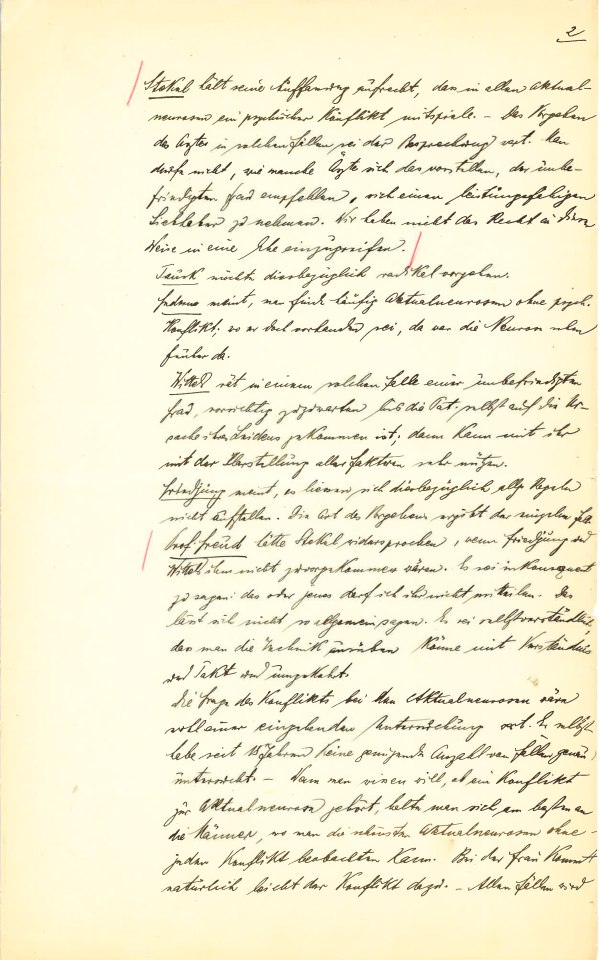 2
Stekel hält seine Auffassung aufrecht, dass in allen Aktual-
neurosen ein psychischer Konflikt mitspiele. – Das Vorgehen
des Arztes in solchen Fällen sei der Besprechung wert. Man
dürfe nicht, wie manche Ärzte sich das vorstellen, der unbe-
friedigten Frau empfehlen, sich einen leistungsfähigen
Liebhaber zu nehmen. Wir haben nicht das Recht in dieser
Weise in eine Ehe einzugreifen.
Tausk möchte diesbezüglich radikal vorgehen.
Federn meint, man finde häufig Aktualneurosen ohne psych.
Konflikt; wo er doch vorhanden sei, da war die Neurose schon
früher da.
Wittels rät in einem solchen Falle einer unbefriedigten
Frau, vorsichtig zuzuwarten bis die Pat. selbst auf die Ur-
sache ihres Leidens gekommen ist; dann kann mit ihr
mit der Herstellung aller Faktoren sehr nützen.
Friedjung meint, es liessen sich diesbezüglich allg. Regeln
nicht aufstellen. Die Art des Vorgehens ergibt der einzelne Fall.
Prof. Freud hätte Stekel widersprochen, wenn Friedjung und
Wittels ihm nicht zuvorgekommen wären. Es sei inkonsequent
zu sagen: das oder jenes darf ich ihr nicht mitteilen. Das
lässt sich nicht so allgemein sagen. Es sei selbstverständlich,
dass man die Technik ausüben könne mit Verständnis
und Takt und umgekehrt.
Die Frage des Konflikts bei den Aktualneurosen wäre
wohl einer eingehenden Untersuchung wert. Er selbst
habe seit 15 Jahren keine genügende Anzahl von Fällen genau
untersucht. – Wenn man wissen will, ob ein Konflikt
zur Aktualneurose gehört, halte man sich am besten an
die Männer, wo man die schönsten Aktualneurosen ohne
jeden Konflikt beobachten kann. Bei der Frau kommt
natürlich leicht der Konflikt dazu. – Allen Fällen wird